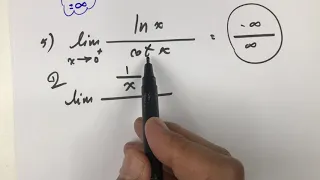 = ∞
x) lim x→0⁺ ln x / cot x = -∞ / ∞
lim 1/x